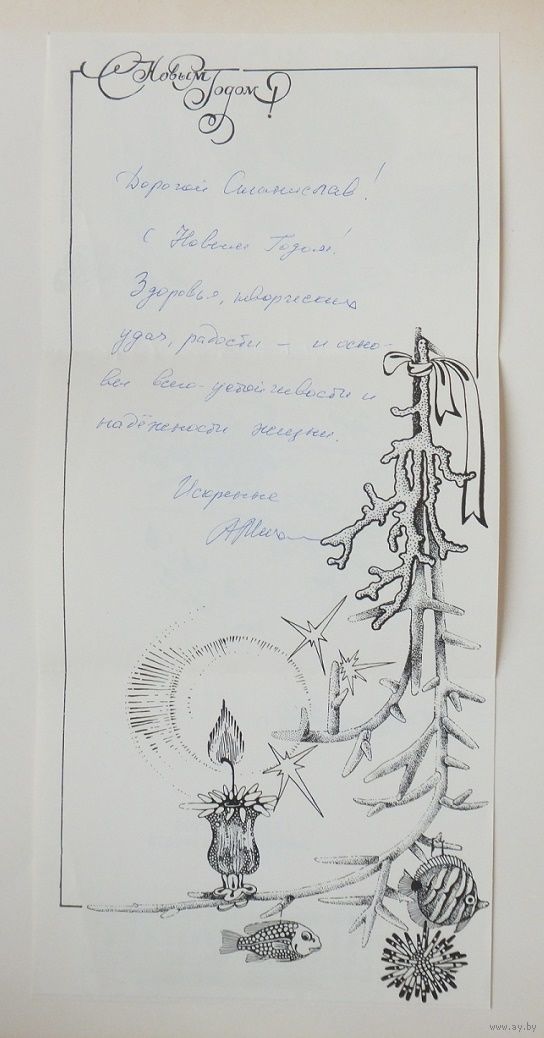 С Новым Годом!
Дорогой Станислав!
С Новым Годом!
Здоровья, творческих
удач, радости – и осно-
вы всего - устойчивости и
надёжности жизни.
Искренне
www.ay.by